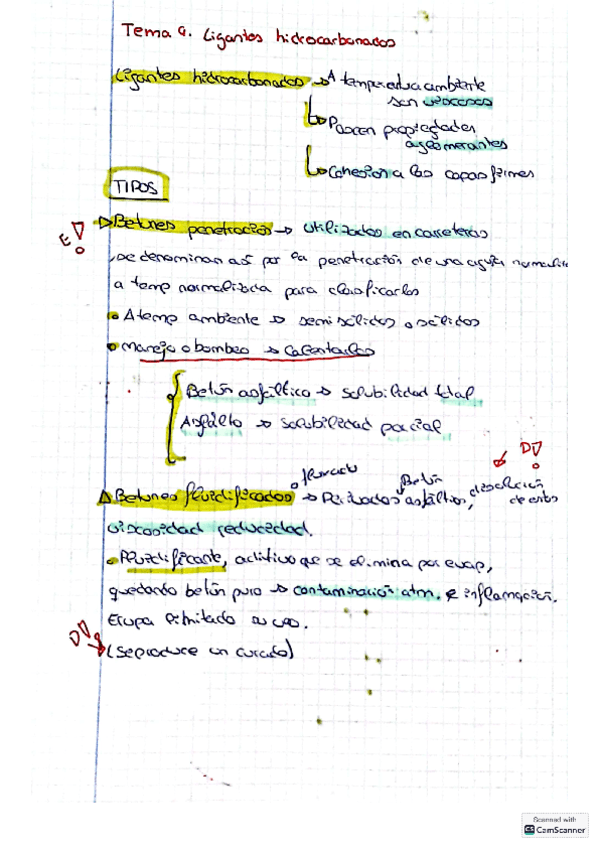 Tema 9. Ligantes hidrocarbonados
Ligantes hidrocarbonados → A temperatura ambiente
son viscosos
Poseen propiedades
aglomerantes
Cohesión a las capas firmes
TIPOS
E! Betunes penetración → utilizados en carreteras
se denominan así por la penetración de una aguja normaliz
a temp normalizada para clasificarlos
A temp ambiente → semisólidos o sólidos
manejo o bombeo → Calentarlos
Betún asfáltico → solubilidad total
Asfalto → solubilidad parcial
D!
o fluxado
Betún
Betunes fluidificados → Derivados asfáltico, disolución
de estos
viscosidad reducidad.
Fluidificante, aditivo que se elimina por evap,
quedando betún puro → contaminación atm. e inflamación.
Europa limitado su uso.
D! (Se produce un curado)
Scanned with
CS CamScanner